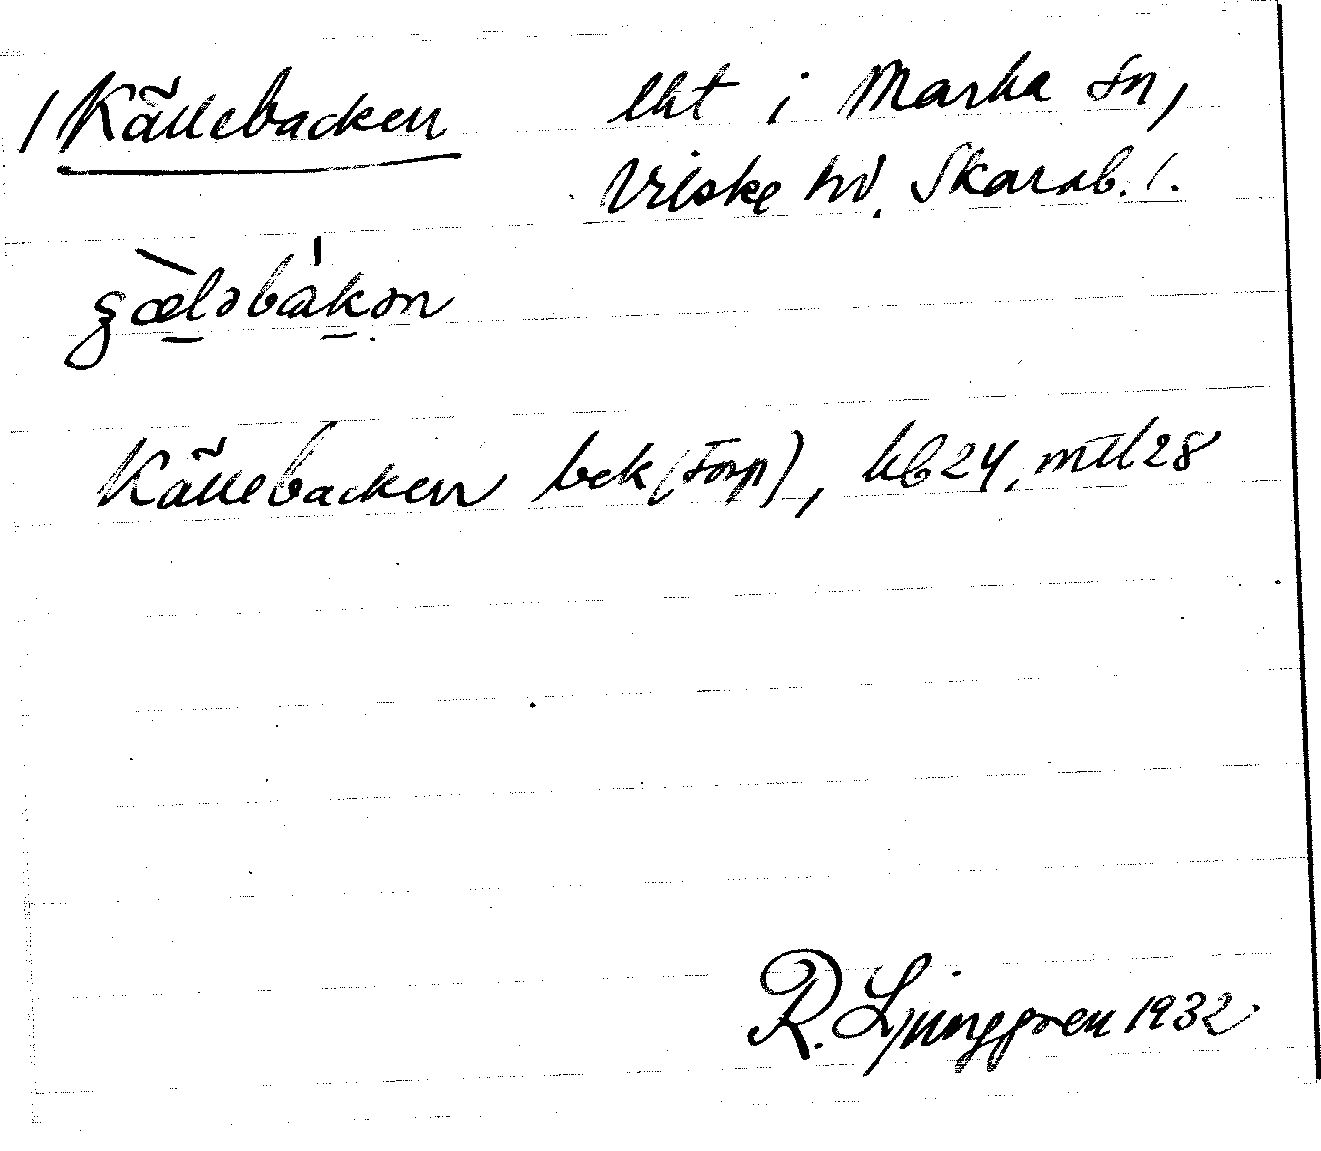 /Källebacken lht i Marka sn,
Vilske hd. Skarab. l.
Källebacken bek (torp), hb 24, mtl 28
R. Ljunggren 1932